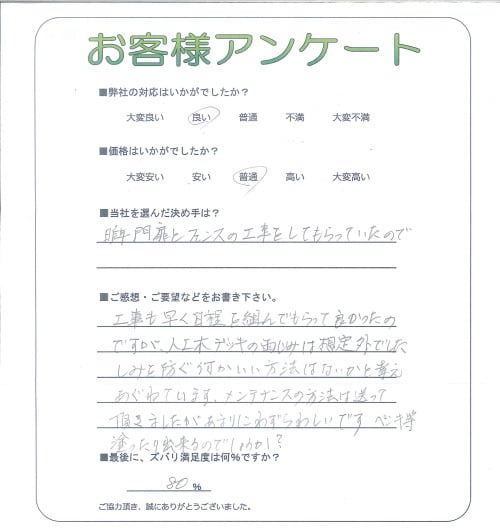 お客様アンケート
■弊社の対応はいかがでしたか?
大変良い 良い 普通 不満 大変不満
■価格はいかがでしたか?
大変安い 安い 普通 高い 大変高い
■当社を選んだ決め手は?
昨年門扉とフェンスの工事をしてもらっていたので
■ご感想・ご要望などをお書き下さい。
工事も早く日程を組んでもらって良かったの
ですが、人工木デッキの雨じみは想定外でした
しみを防ぐ何かいい方法はないかと考え
あぐねています、メンテナンスの方法は送って
頂きましたがあまりにわずらわしいです ペンキ等
塗ったり出来るのでしょうか?
■最後に、ズバリ満足度は何%ですか?
80 %
ご協力頂き、誠にありがとうございました。